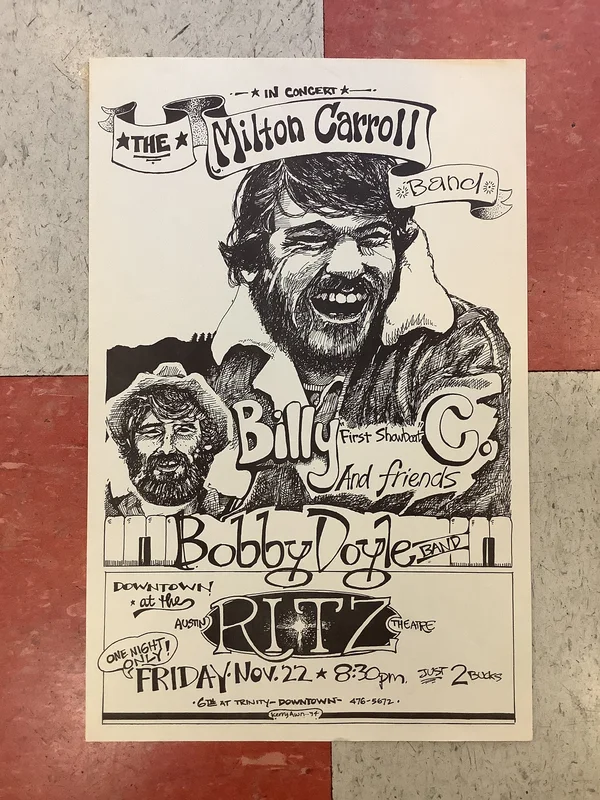 ★ IN CONCERT ★
★ THE ★
Milton Carroll
Band
Billy First Showboat C.
And friends
Bobby Doyle BAND
DOWNTOWN
★ at the
AUSTIN RITZ THEATRE
ONE NIGHT ONLY!
FRIDAY·NOV. 22 ★ 8:30pm. JUST 2 BUCKS
·6TH AT TRINITY–DOWNTOWN– 476-5672·
Kerry Awn–74